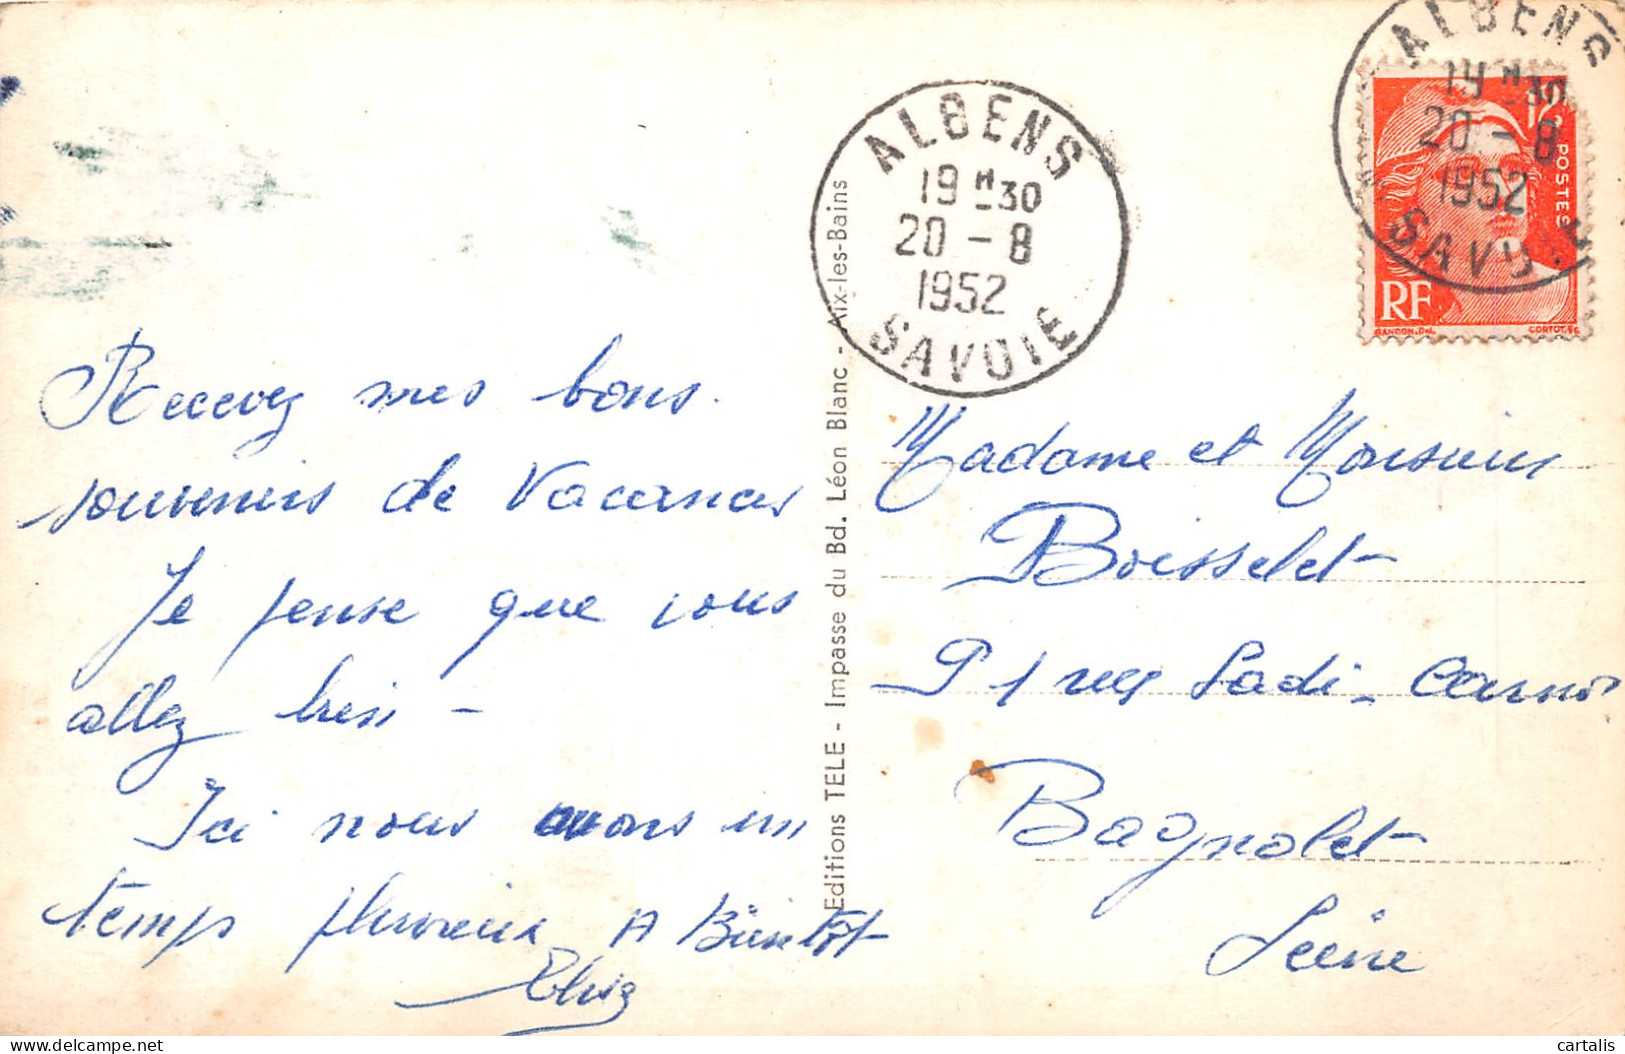 Recevez mes bons
souvenirs de Vacances
Je pense que vous
allez bien -
Ici nous avons un
temps pluvieux A Bientôt
Editions TELE - Impasse du Bd. Léon Blanc - Aix-les-Bains
ALBENS
19 H 30
20 - 8
1952
SAVOIE
ALBENS
19 H 30
20 - 8
1952
SAVOIE
15
POSTES
RF
GANDON.Del.
CORTOT.SC
Madame et Monsieur
Boisselet
91 rue Sadi-Carnot
Bagnolet
Seine
cartalis
delcampe.net